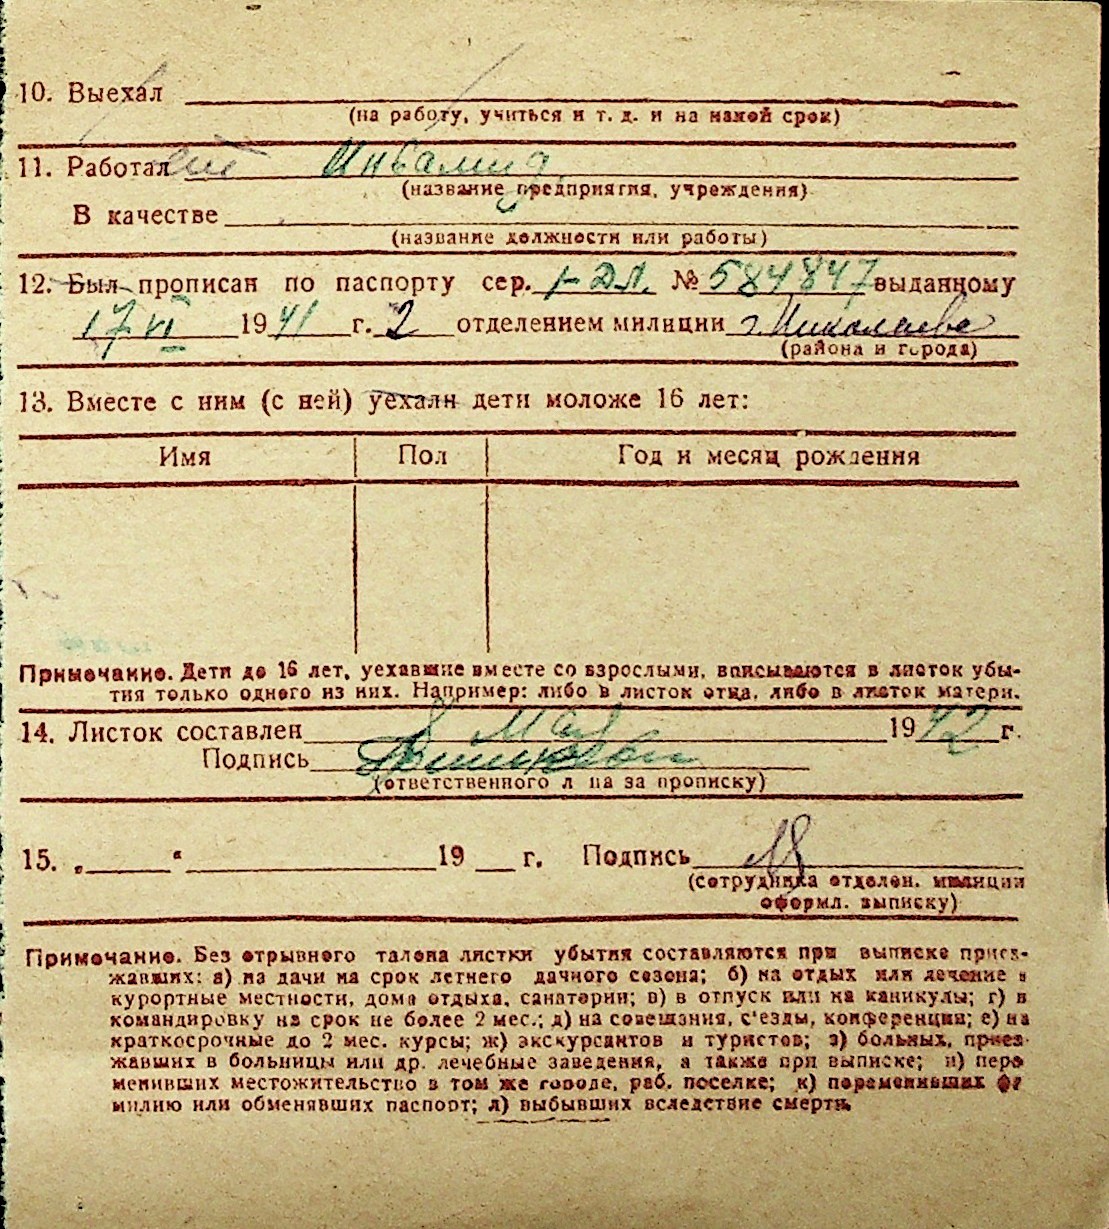 10. Выехал
(на работу, учиться и т. д. и на какой срок)
11. Работал Инвалид
(название предприятия, учреждения)
В качестве
(название должности или работы)
12. Был прописан по паспорту сер. № 584847 выданному
17 VI 1941 г. 2 отделением милиции г. Николаева
(района и города)
13. Вместе с ним (с ней) уехали дети моложе 16 лет:
Имя Пол Год и месяц рождения
Примечание. Дети до 16 лет, уехавшие вместе со взрослыми, вписываются в листок убы-
тия только одного из них. Например: либо в листок отца, либо в листок матери.
14. Листок составлен 8 Мая 1942 г.
Подпись
(ответственного л ца за прописку)
15. „ “ 19 г. Подпись
(сотрудника отделен. милиции
оформл. выписку)
Примечание. Без отрывного талона листки убытия составляются при выписке приез-
жавших: а) на дачи на срок летнего дачного сезона; б) на отдых или лечение в
курортные местности, дома отдыха, санатории; в) в отпуск или на каникулы; г) в
командировку на срок не более 2 мес.; д) на совещания, с'езды, конференции; е) на
краткосрочные до 2 мес. курсы; ж) экскурсантов и туристов; з) больных, приез-
жавших в больницы или др. лечебные заведения, а также при выписке; и) пере
менивших местожительство в том же городе, раб. поселке; к) переменивших фа
милию или обменявших паспорт; л) выбывших вследствие смерти.